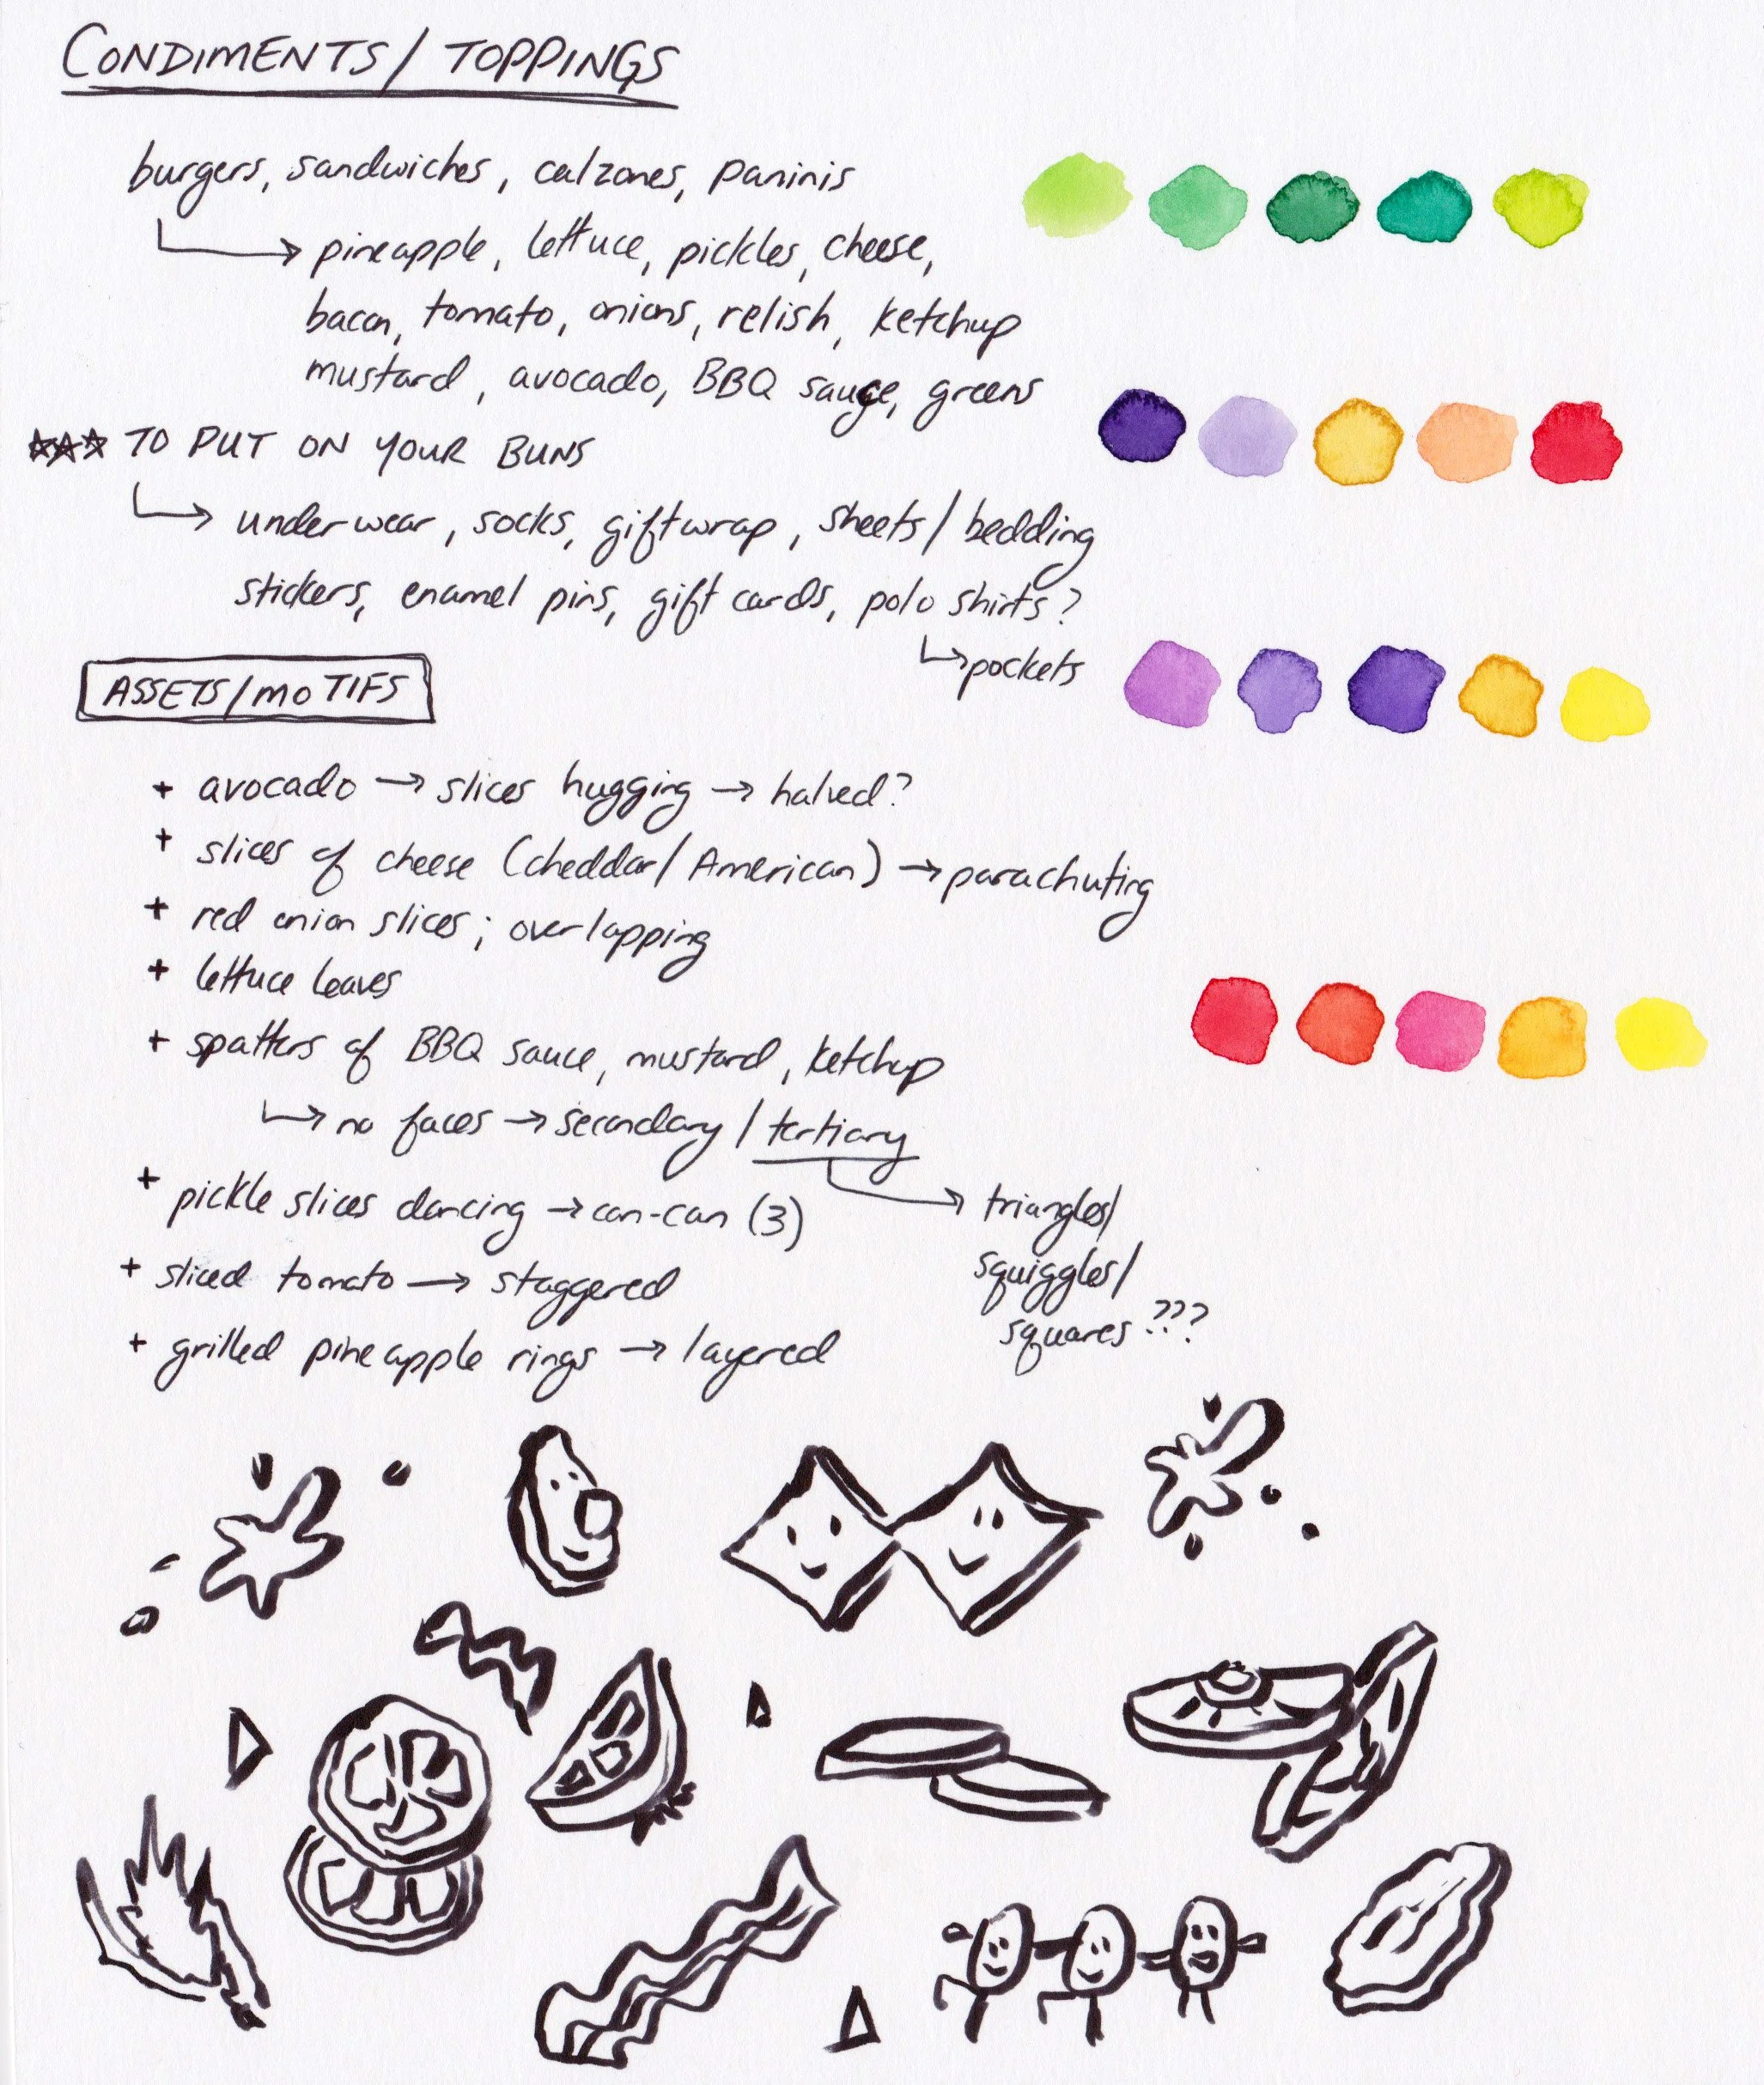 CONDIMENTS/ TOPPINGS
burgers, sandwiches, calzones, paninis
→ pineapple, lettuce, pickles, cheese,
bacon, tomato, onions, relish, ketchup
mustard, avocado, BBQ sauce, greens
★★★ TO PUT ON YOUR BUNS
→ underwear, socks, giftwrap, sheets/ bedding
stickers, enamel pins, gift cards, polo shirts?
→ pockets
ASSETS/MOTIFS
+ avocado → slices hugging → halved?
+ slices of cheese (cheddar/ American) → parachuting
+ red onion slices; overlapping
+ lettuce leaves
+ spatters of BBQ sauce, mustard, ketchup
→ no faces → secondary / tertiary
+ pickle slices dancing → can-can (3)
→ triangles/
squiggles/
squares ???
+ sliced tomato → staggered
+ grilled pineapple rings → layered